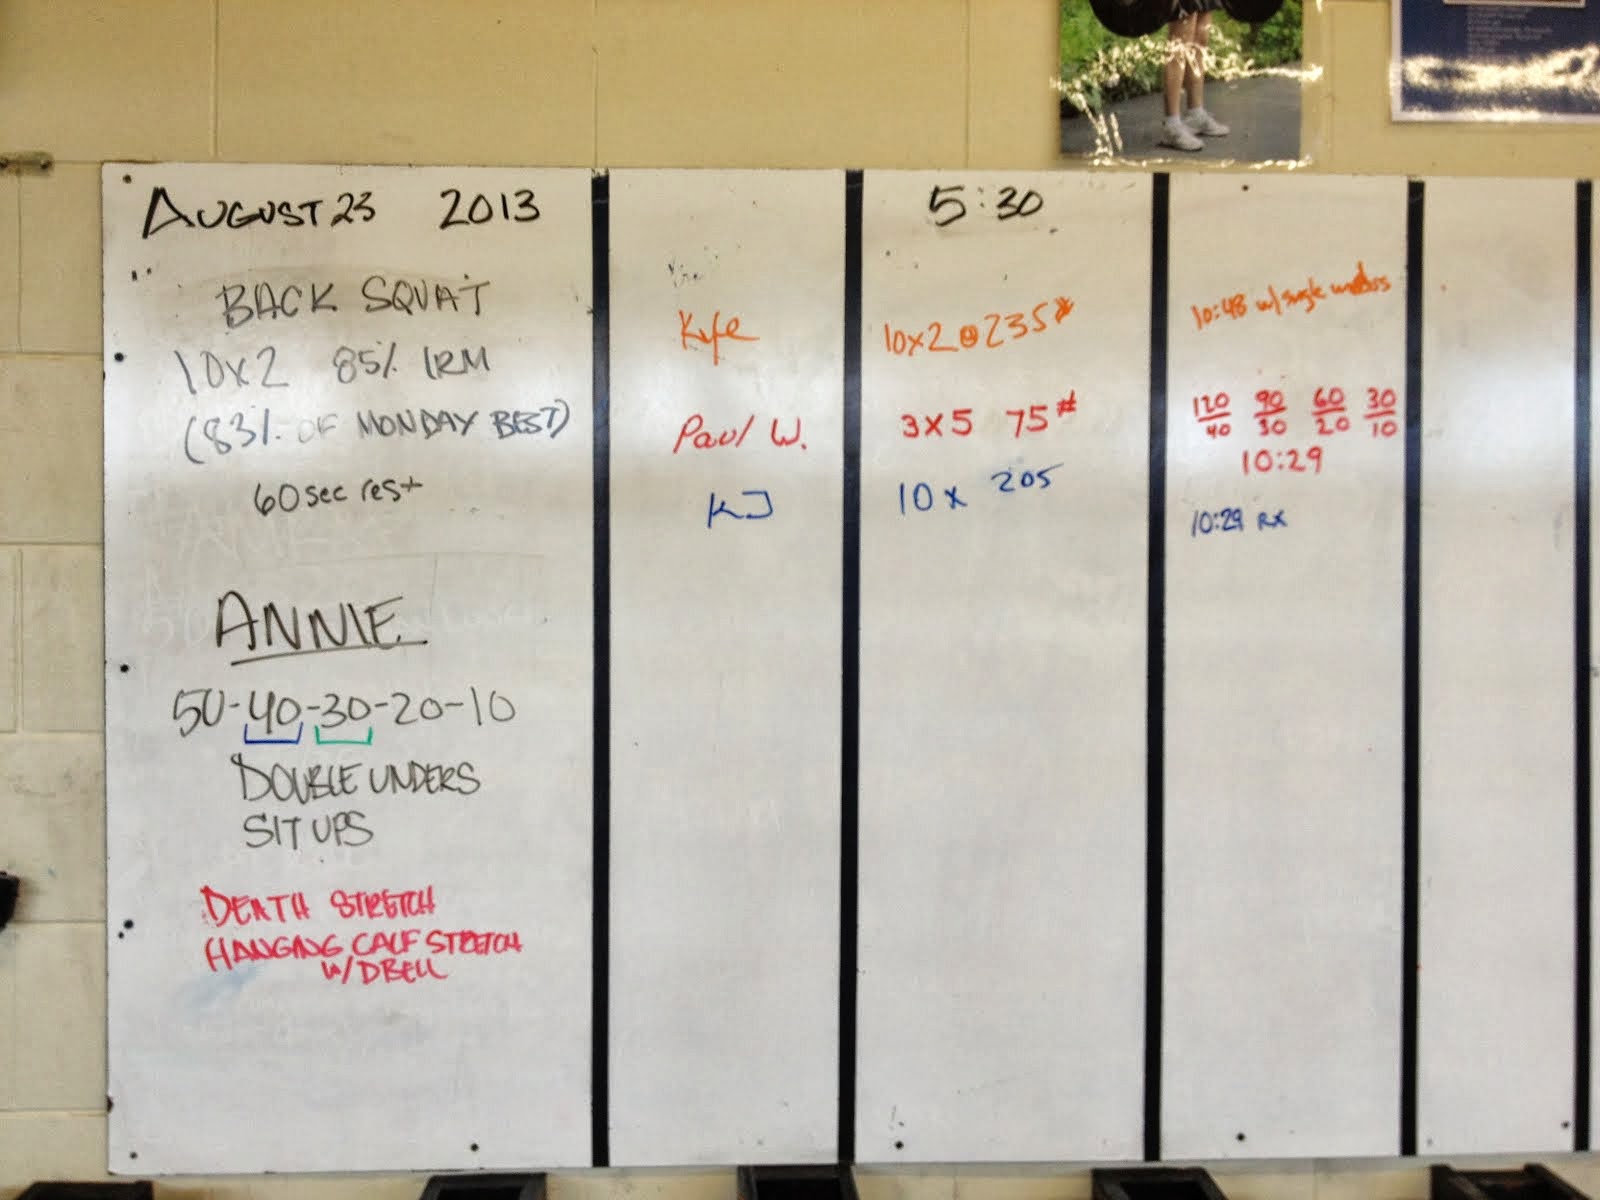 AUGUST 23 2013
BACK SQUAT
10x2 85% 1RM
(83% OF MONDAY BEST)
60 sec rest
ANNIE
50-40-30-20-10
DOUBLE UNDERS
SIT UPS
DEATH STRETCH
HANGING CALF STRETCH
W/DBELL
5:30
Kyle 10x2@235# 10:48 w/ single unders
Paul W. 3x5 75# 120/40 90/30 60/20 30/10
10:29
KJ 10x 205 10:29 RX